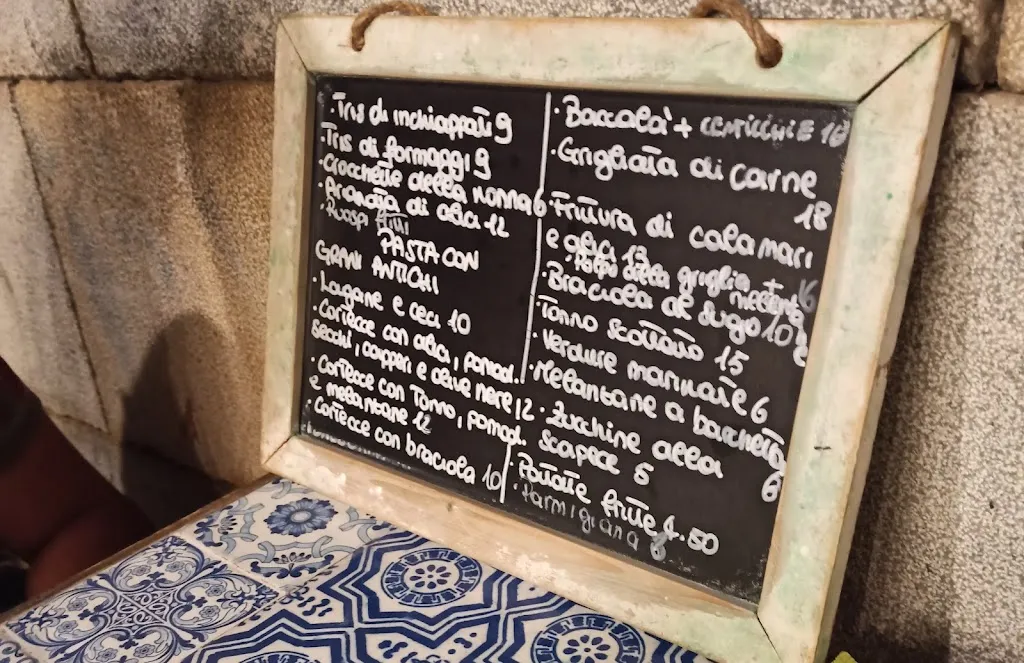 ·Tris di inchiappati 9
Tris di formaggi 9
·Crocchette della nonna 6
·Aranciata di alici 12
·Ruospi fritti
PASTA CON
GRANI ANTICHI
·Lagane e ceci 10
·Cortecce con alici, pomod.
secchi, capperi e olive nere 12
·Cortecce con Tonno, pomod.
e melanzane 12
·Cortecce con braciola 10
·Baccalà + CENTICCHIE 10
·Grigliata di carne
18
·Frittura di calamari
e alici 13
·Polpi alla griglia 16
·Braciola al sugo 10
·Tonno scottato 15
·Verdure marinate 6
·Melanzane a barchetta
6
·Zucchine alla
scapece 5
·Patate fritte 4.50
·Parmigiana 8